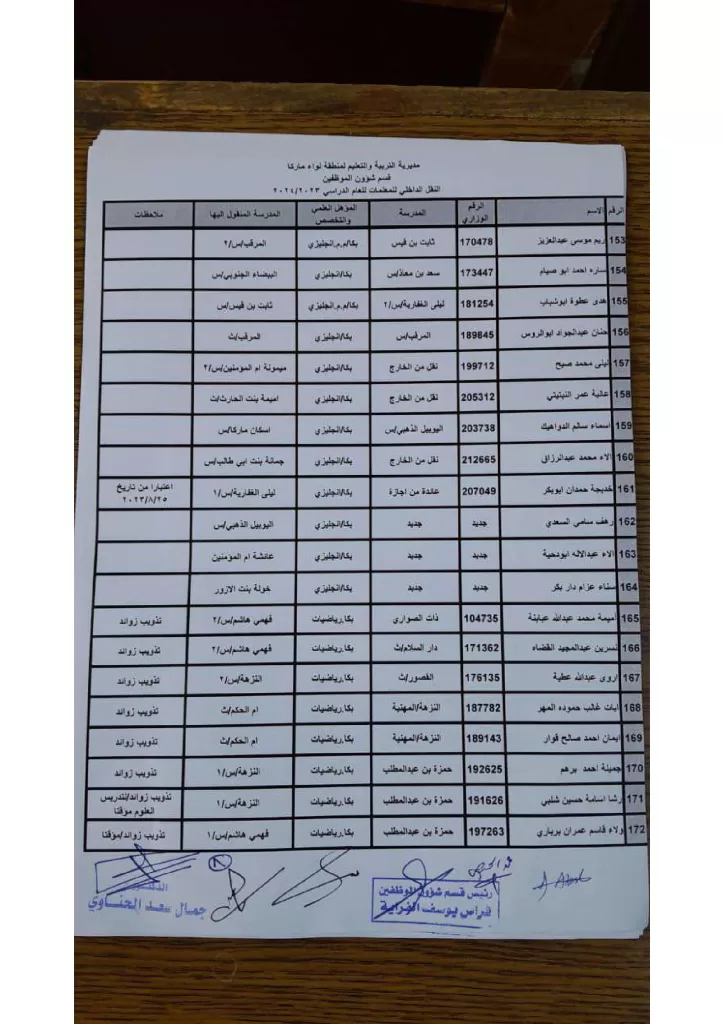 مديرية التربية والتعليم لمنطقة لواء ماركا
قسم شؤون الموظفين
النقل الداخلي للمعلمات للعام الدراسي ٢٠٢٤/٢٠٢٣
الرقم الاسم الرقم الوزاري المدرسة المؤهل العلمي والتخصص المدرسة المنقول اليها ملاحظات
153 ريم موسى عبدالعزيز 170478 ثابت بن قيس بكا/م.م.انجليزي المرقب/س/٢
154 ساره احمد ابو صيام 173447 سعد بن معاذ/س بكا/انجليزي البيضاء الجنوبي/س
155 هدى عطوة ابوشباب 181254 ليلى الغفارية/س/٢ بكا/م.م.انجليزي ثابت بن قيس/س
156 حنان عبدالجواد ابوالروس 189845 المرقب/س بكا/انجليزي المرقب/ث
157 ليلى محمد صبح 199712 نقل من الخارج بكا/انجليزي ميمونة ام المؤمنين/س/٢
158 عالية عمر النبتيتي 205312 نقل من الخارج بكا/انجليزي اميمة بنت الحارث/ث
159 اسماء سالم الدواهيك 203738 اليوبيل الذهبي/س بكا/انجليزي اسكان ماركا/س
160 الاء محمد عبدالرزاق 212665 نقل من الخارج بكا/انجليزي جمانة بنت ابي طالب/س
161 خديجة حمدان ابوبكر 207049 عائدة من اجازة بكا/انجليزي ليلى الغفارية/س/١ اعتبارا من تاريخ ٢٠٢٣/٨/٢٥
162 رهف سامي السعدي جديد جديد بكا/انجليزي اليوبيل الذهبي/س
163 الاء عبدالاله ابودحية جديد جديد بكا/انجليزي عائشة ام المؤمنين
164 سناء عزام دار بكر جديد جديد بكا/انجليزي خولة بنت الازور
165 أميمة محمد عبدالله عبابنة 104735 ذات الصواري بكا.رياضيات فهمي هاشم/س/٢ تذويب زوائد
166 نسرين عبدالمجيد القضاه 171362 دار السلام/ث بكا.رياضيات فهمي هاشم/س/٢ تذويب زوائد
167 اروى عبدالله عطية 176135 القصور/ث بكا.رياضيات النزهة/س/٢ تذويب زوائد
168 ايات غالب حموده المهر 187782 النزهة/المهنية بكا.رياضيات ام الحكم/ث تذويب زوائد
169 ايمان احمد صالح قوار 189143 النزهة/المهنية بكا.رياضيات ام الحكم/ث تذويب زوائد
170 جميلة احمد برهم 192625 حمزة بن عبدالمطلب بكا.رياضيات النزهة/س/١ تذويب زوائد
171 رشا اسامة حسين شلبي 191626 حمزة بن عبدالمطلب بكا.رياضيات النزهة/س/١ تذويب زوائد/لتدريس العلوم مؤقتا
172 ولاء قاسم عمران برباري 197263 حمزة بن عبدالمطلب بكا.رياضيات فهمي هاشم/س/١ تذويب زوائد/مؤقتا
رئيس قسم شؤون الموظفين
فراس يوسف الغراية
جمال سعد الحنناوي